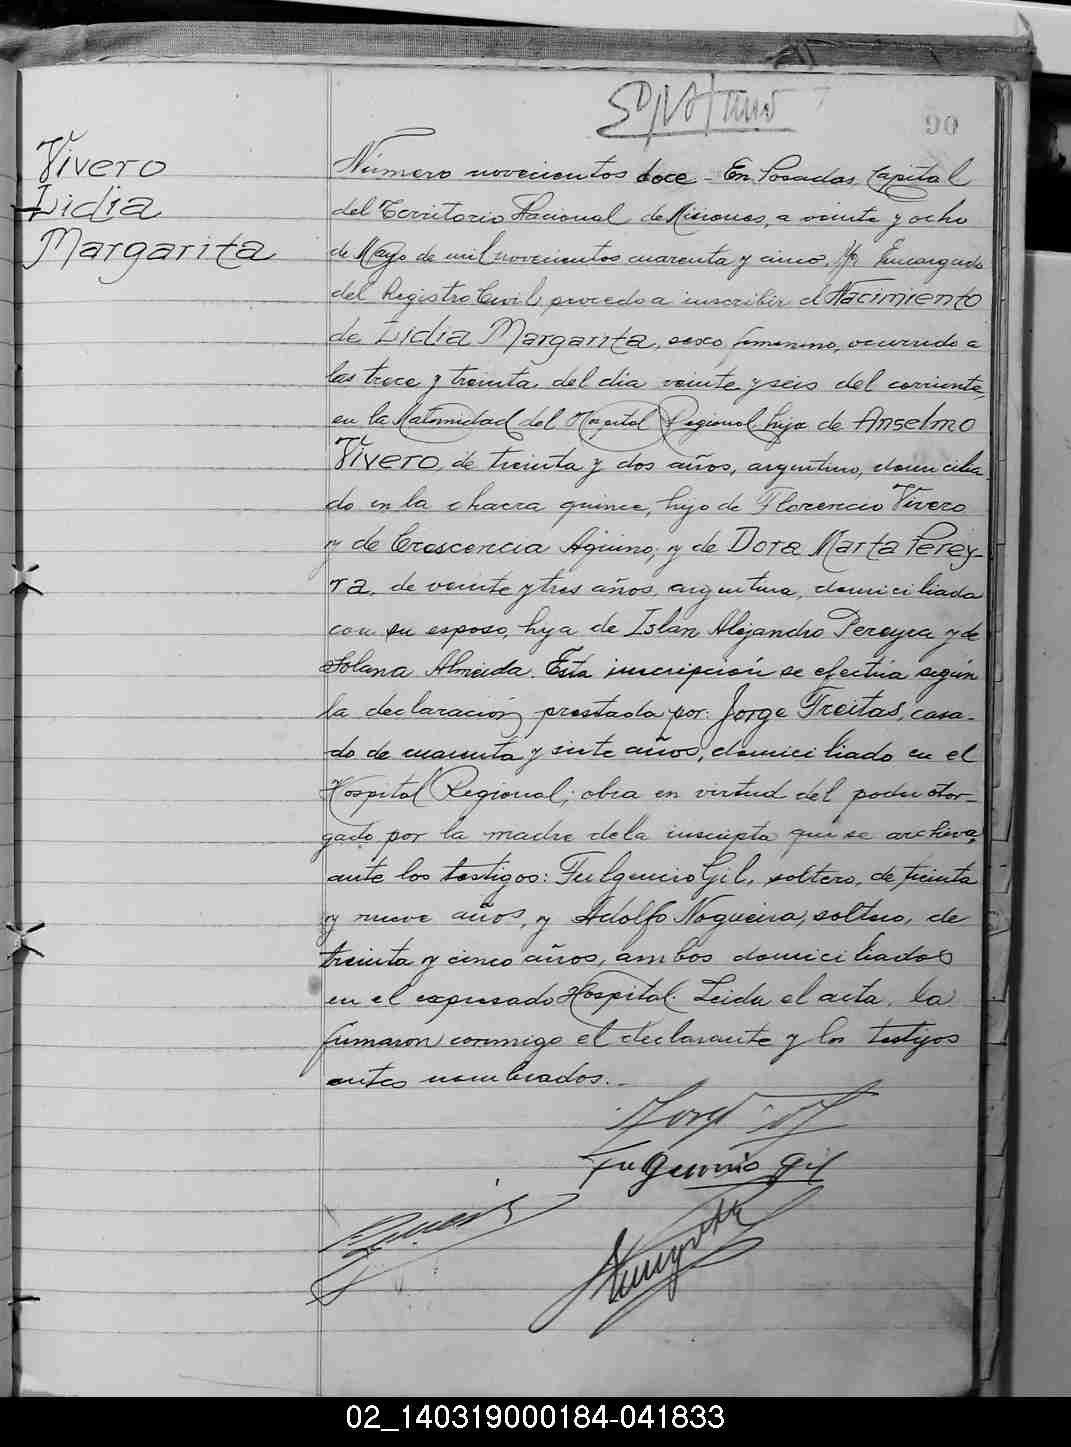 90
Vivero
Lidia
Margarita
Número novecientos doce. En Posadas, Capital
del Territorio Nacional de Misiones, a veinte y ocho
de Mayo de mil novecientos cuarenta y cinco, Yo, Encargado
del Registro Civil, procedo a inscribir el Nacimiento
de Lidia Margarita, sexo femenino, ocurrido a
las trece y treinta del dia veinte y seis del corriente,
en la Maternidad del Hospital Regional, hija de Anselmo
Vivero, de treinta y dos años, argentino, domicilia-
do en la chacra quince, hijo de Florencio Vivero
y de Crescencia Aquino; y de Dora Marta Perey-
ra, de veinte y tres años, argentina, domiciliada
con su esposo, hija de Islan Alejandro Pereyra y de
Solana Almeida. Esta inscripción se efectúa según
la declaración prestada por: Jorge Freitas, casa-
do de cuarenta y siete años, domiciliado en el
Hospital Regional; obra en virtud del poder otor-
gado por la madre de la inscripta que se archiva,
ante los testigos: Fulgencio Gil, soltero, de treinta
y nueve años, y Adolfo Nogueira, soltero, de
treinta y cinco años, ambos domiciliados
en el expresado Hospital. Leida el acta, la
firmaron conmigo el declarante y los testigos
antes nombrados.-
Fulgencio Gil
02_140319000184-041833